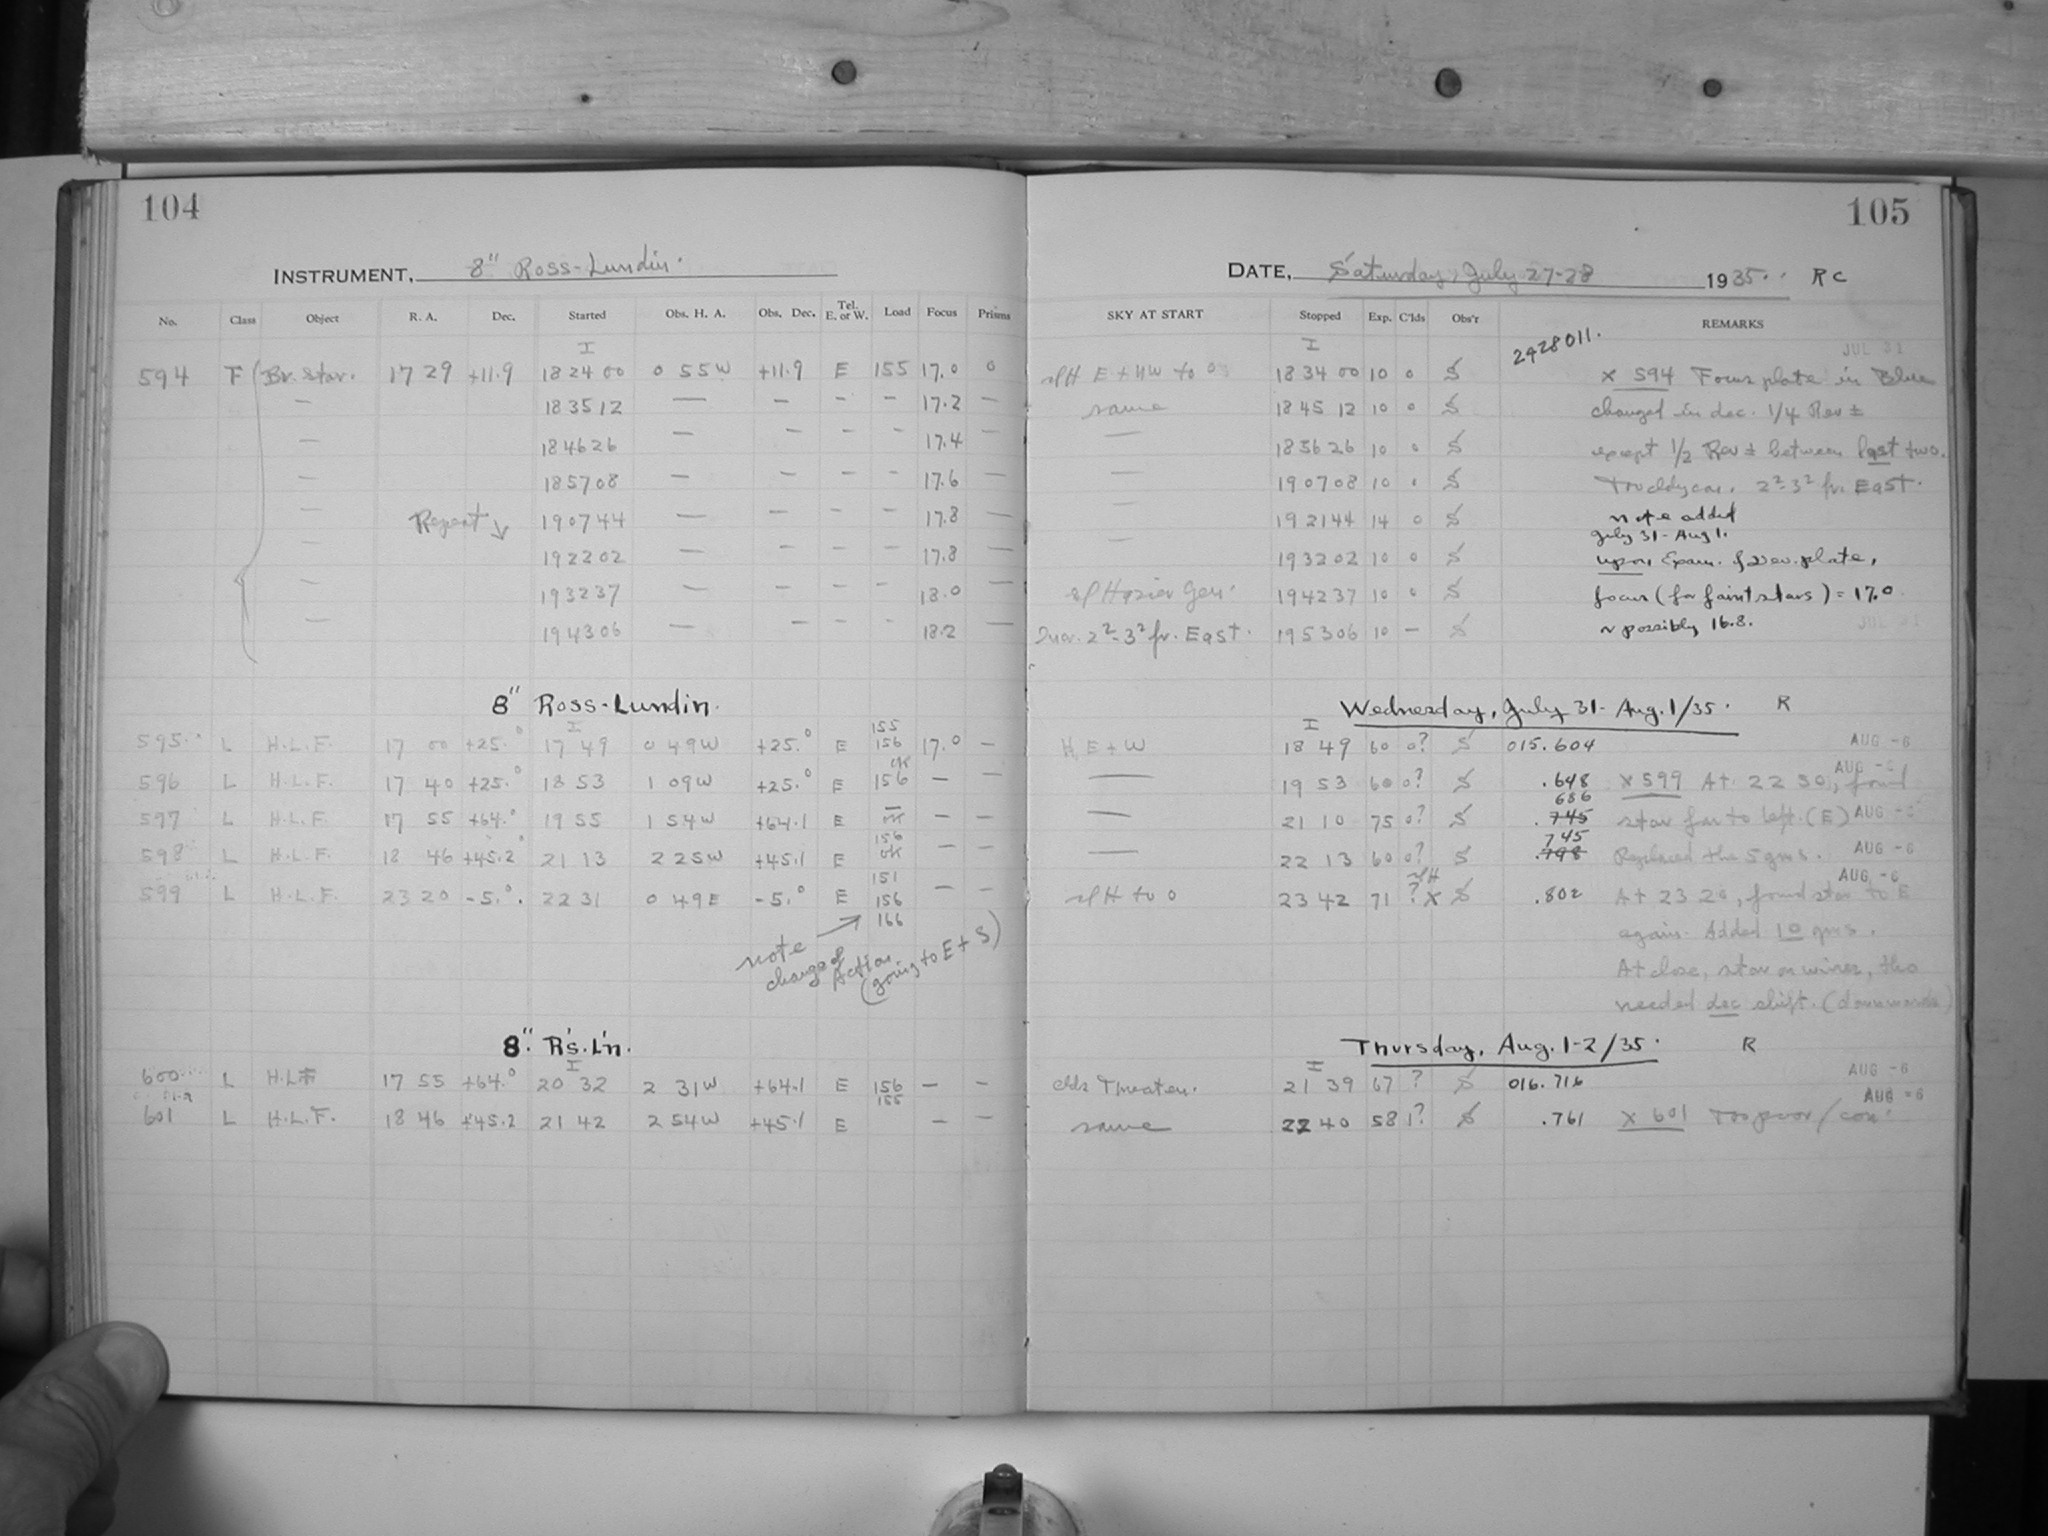 104
INSTRUMENT, 8" Ross-Lundin.
No. Class Object R. A. Dec. Started Obs. H. A. Obs. Dec. Tel. E. or W. Load Focus Prisms
I
594 F Br. Star. 17 29 +11.9 18 24 00 0 55 W +11.9 E 155 17.0 0
— 18 35 12 — — — — 17.2 —
— 18 46 26 — — — — 17.4 —
— 18 57 08 — — — — 17.6 —
— Repeat 19 07 44 — — — — 17.8 —
— 19 22 02 — — — — 17.8 —
— 19 32 37 — — — — 18.0 —
— 19 43 06 — — — — 18.2 —
8" Ross-Lundin.
I
595 L H.L.F. 17 00 +25.° 17 49 0 49 W +25.° E 155 156 17.0 —
596 L H.L.F. 17 40 +25.° 18 53 1 09 W +25.° E ok 156 — —
597 L H.L.F. 17 55 +64.° 19 55 1 54 W +64.1 E — ok — —
598 L H.L.F. 18 46 +45.2 21 13 2 25 W +45.1 E 156 ok — —
599 L H.L.F. 23 20 -5.° 22 31 0 49 E -5.° E 151 156 166 — —
note
change of
Action
(going to E + S)
8." R's. L'n.
I
600 L H.L.F. 17 55 +64.° 20 32 2 31 W +64.1 E 156 155 — —
601 L H.L.F. 18 46 +45.2 21 42 2 54 W +45.1 E — —
105
DATE, Saturday, July 27-28 1935. R C
SKY AT START Stopped Exp. C'lds Obs'r REMARKS
I 2428011. JUL 31
E + NW to 0 18 34 00 10 0 S X 594 Focus plate in Blue
same 18 45 12 10 0 S changed in dec. 1/4 Rev ±
— 18 56 26 10 0 S except 1/2 Rev ± between last two.
— 19 07 08 10 S 2²-3² fr. East.
— 19 21 44 14 0 S note added
July 31 - Aug 1.
— 19 32 02 10 0 S upon Exam. of dev. plate,
Hazier Gen. 19 42 37 10 0 S focus (for faint stars) = 17.0
2²-3² fr. East. 19 53 06 10 — S or possibly 16.8.
Wednesday, July 31 - Aug. 1/35. R
I
H, E + W 18 49 60 0? S 015.604 AUG -6
— 19 53 60 0? S .648 X 599 At 22 50, found AUG -6
— 21 10 75 0? S 686 .745 star far to left. (E) AUG -6
— 22 13 60 0? S 745 .798 Replaced the 5 gms. AUG -6
H to 0 23 42 71 ? X S .802 At 23 20, found star to E AUG -6
again. Added 10 gms.
At close, star on wires, tho
needed dec shift. (downwards)
Thursday, Aug. 1-2/35. R
I
Clds Threaten. 21 39 67 ? S 016.716 AUG -6
same 22 40 58 1? S .761 X 601 Too poor AUG -6